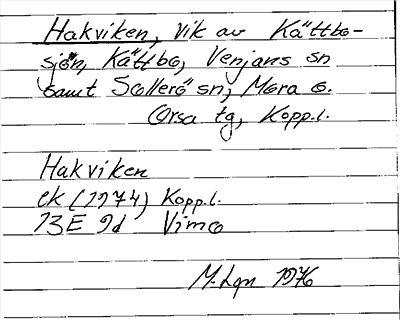 Hakviken, vik av Kättbo-
sjön, Kättbo, Venjans sn
samt Sollerö sn, Mora o.
Orsa tg, Kopp.l.
Hakviken
ek (1974) Kopp.l.
13E 9d Vimo
M.Lgn 1976